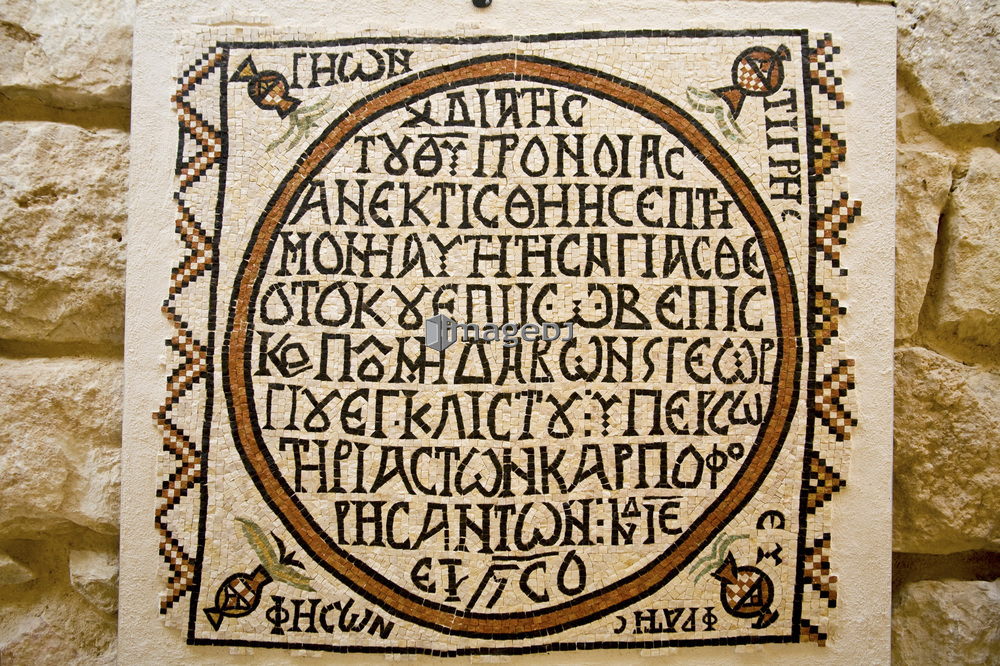 ΓΗΩΝ
ΤΙΓΡΗC
ΔΙΑΤΗC
ΤΥΘΥ ΠΡΟΝΟΙΑC
ΑΝΕΚΤΙCΘΗΗCΕΠΤΗ
ΜΟΝΗΑΥΤΗΤΗCΑΓΙΑCΘΕ
ΟΤΟΚΥΕΠΙ ΩΒΕΠΙC
ΚΟΠΟΜΗΔΑΒΩΝSΓΕΩΡ
ΓΙΥΕΓ·ΚΛΙCΤΥ·ΥΠΕΡCΩ
ΤΗΡΙΑCΤΩΝΚΑΡΠΟΦΟ
ΡΗCΑΝΤΩΝ: ΙΕ
ΕΤ CΟ
ΦΗCΩΝ
ΕΥ
ΦΡΑΤΗC
imageDJ